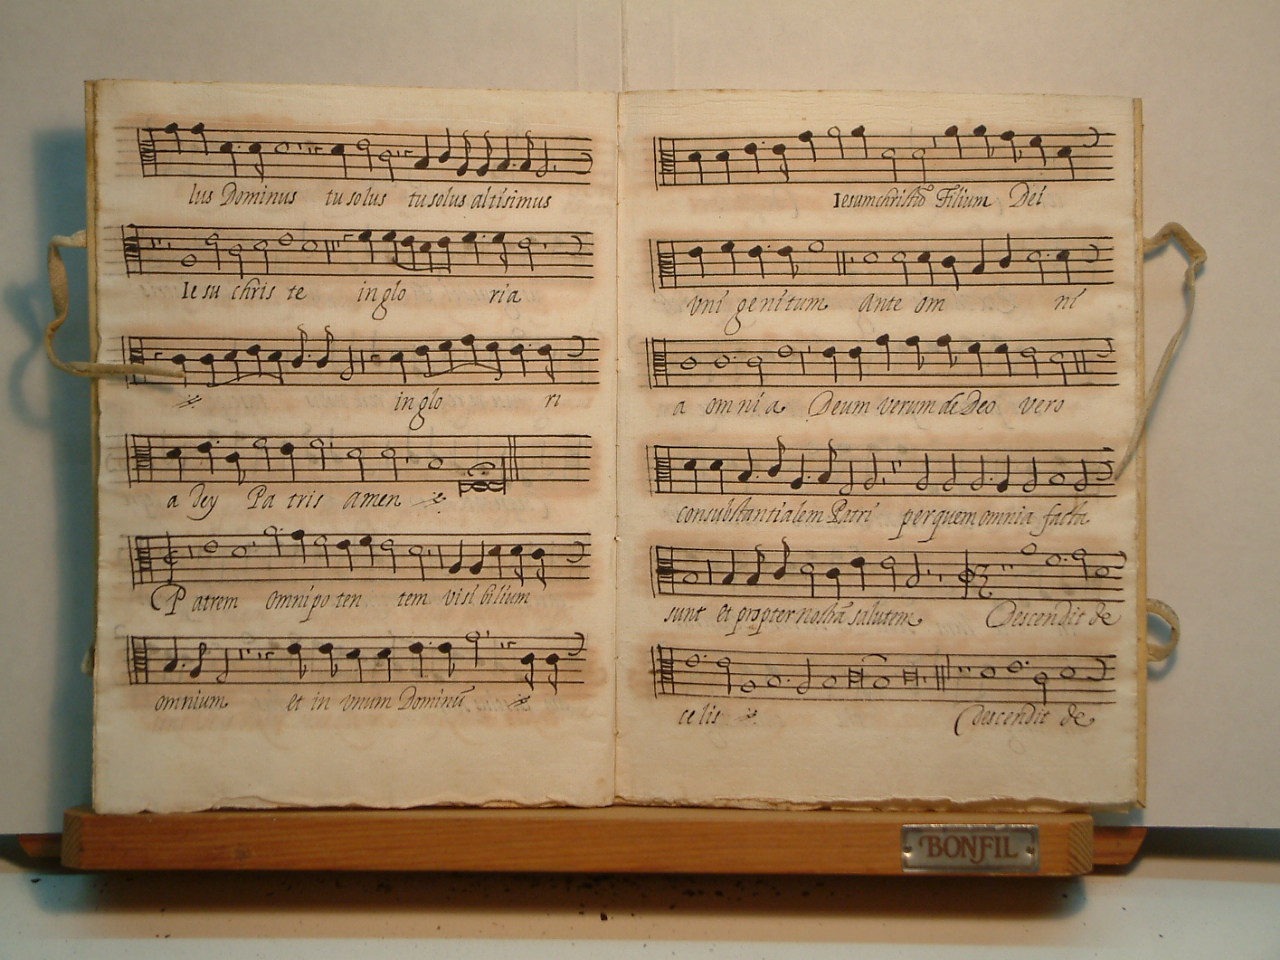 lus Dominus tu solus tu solus altisimus
Iesu christe in glo ria
in glo ri
a Dey Pa tris amen
Patrem omnipo ten tem visi bilium
omnium et in vnum Dominũ
Iesum christũ Filium Dei
vni genitum ante om ni
a omnia Deum verum de Deo vero
consubstantialem Patri per quem omnia facta
sunt et propter nostrã salutem Descendit de
celis Descendit de
BONFIL